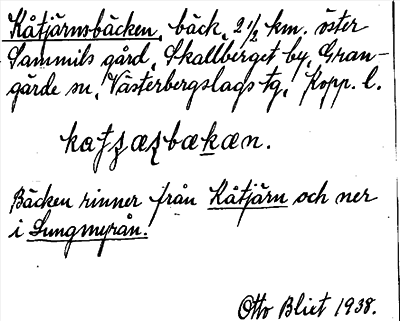 Kåtjärnsbäcken, bäck, 2 1/2 km. öster
Sammils gård, Skallberget by, Gran-
gärde sn, Västerbergslags tg, Kopp. l.
Bäcken rinner från Kåtjärn och ner
i Lungmyrån.
Otto Blixt 1938.